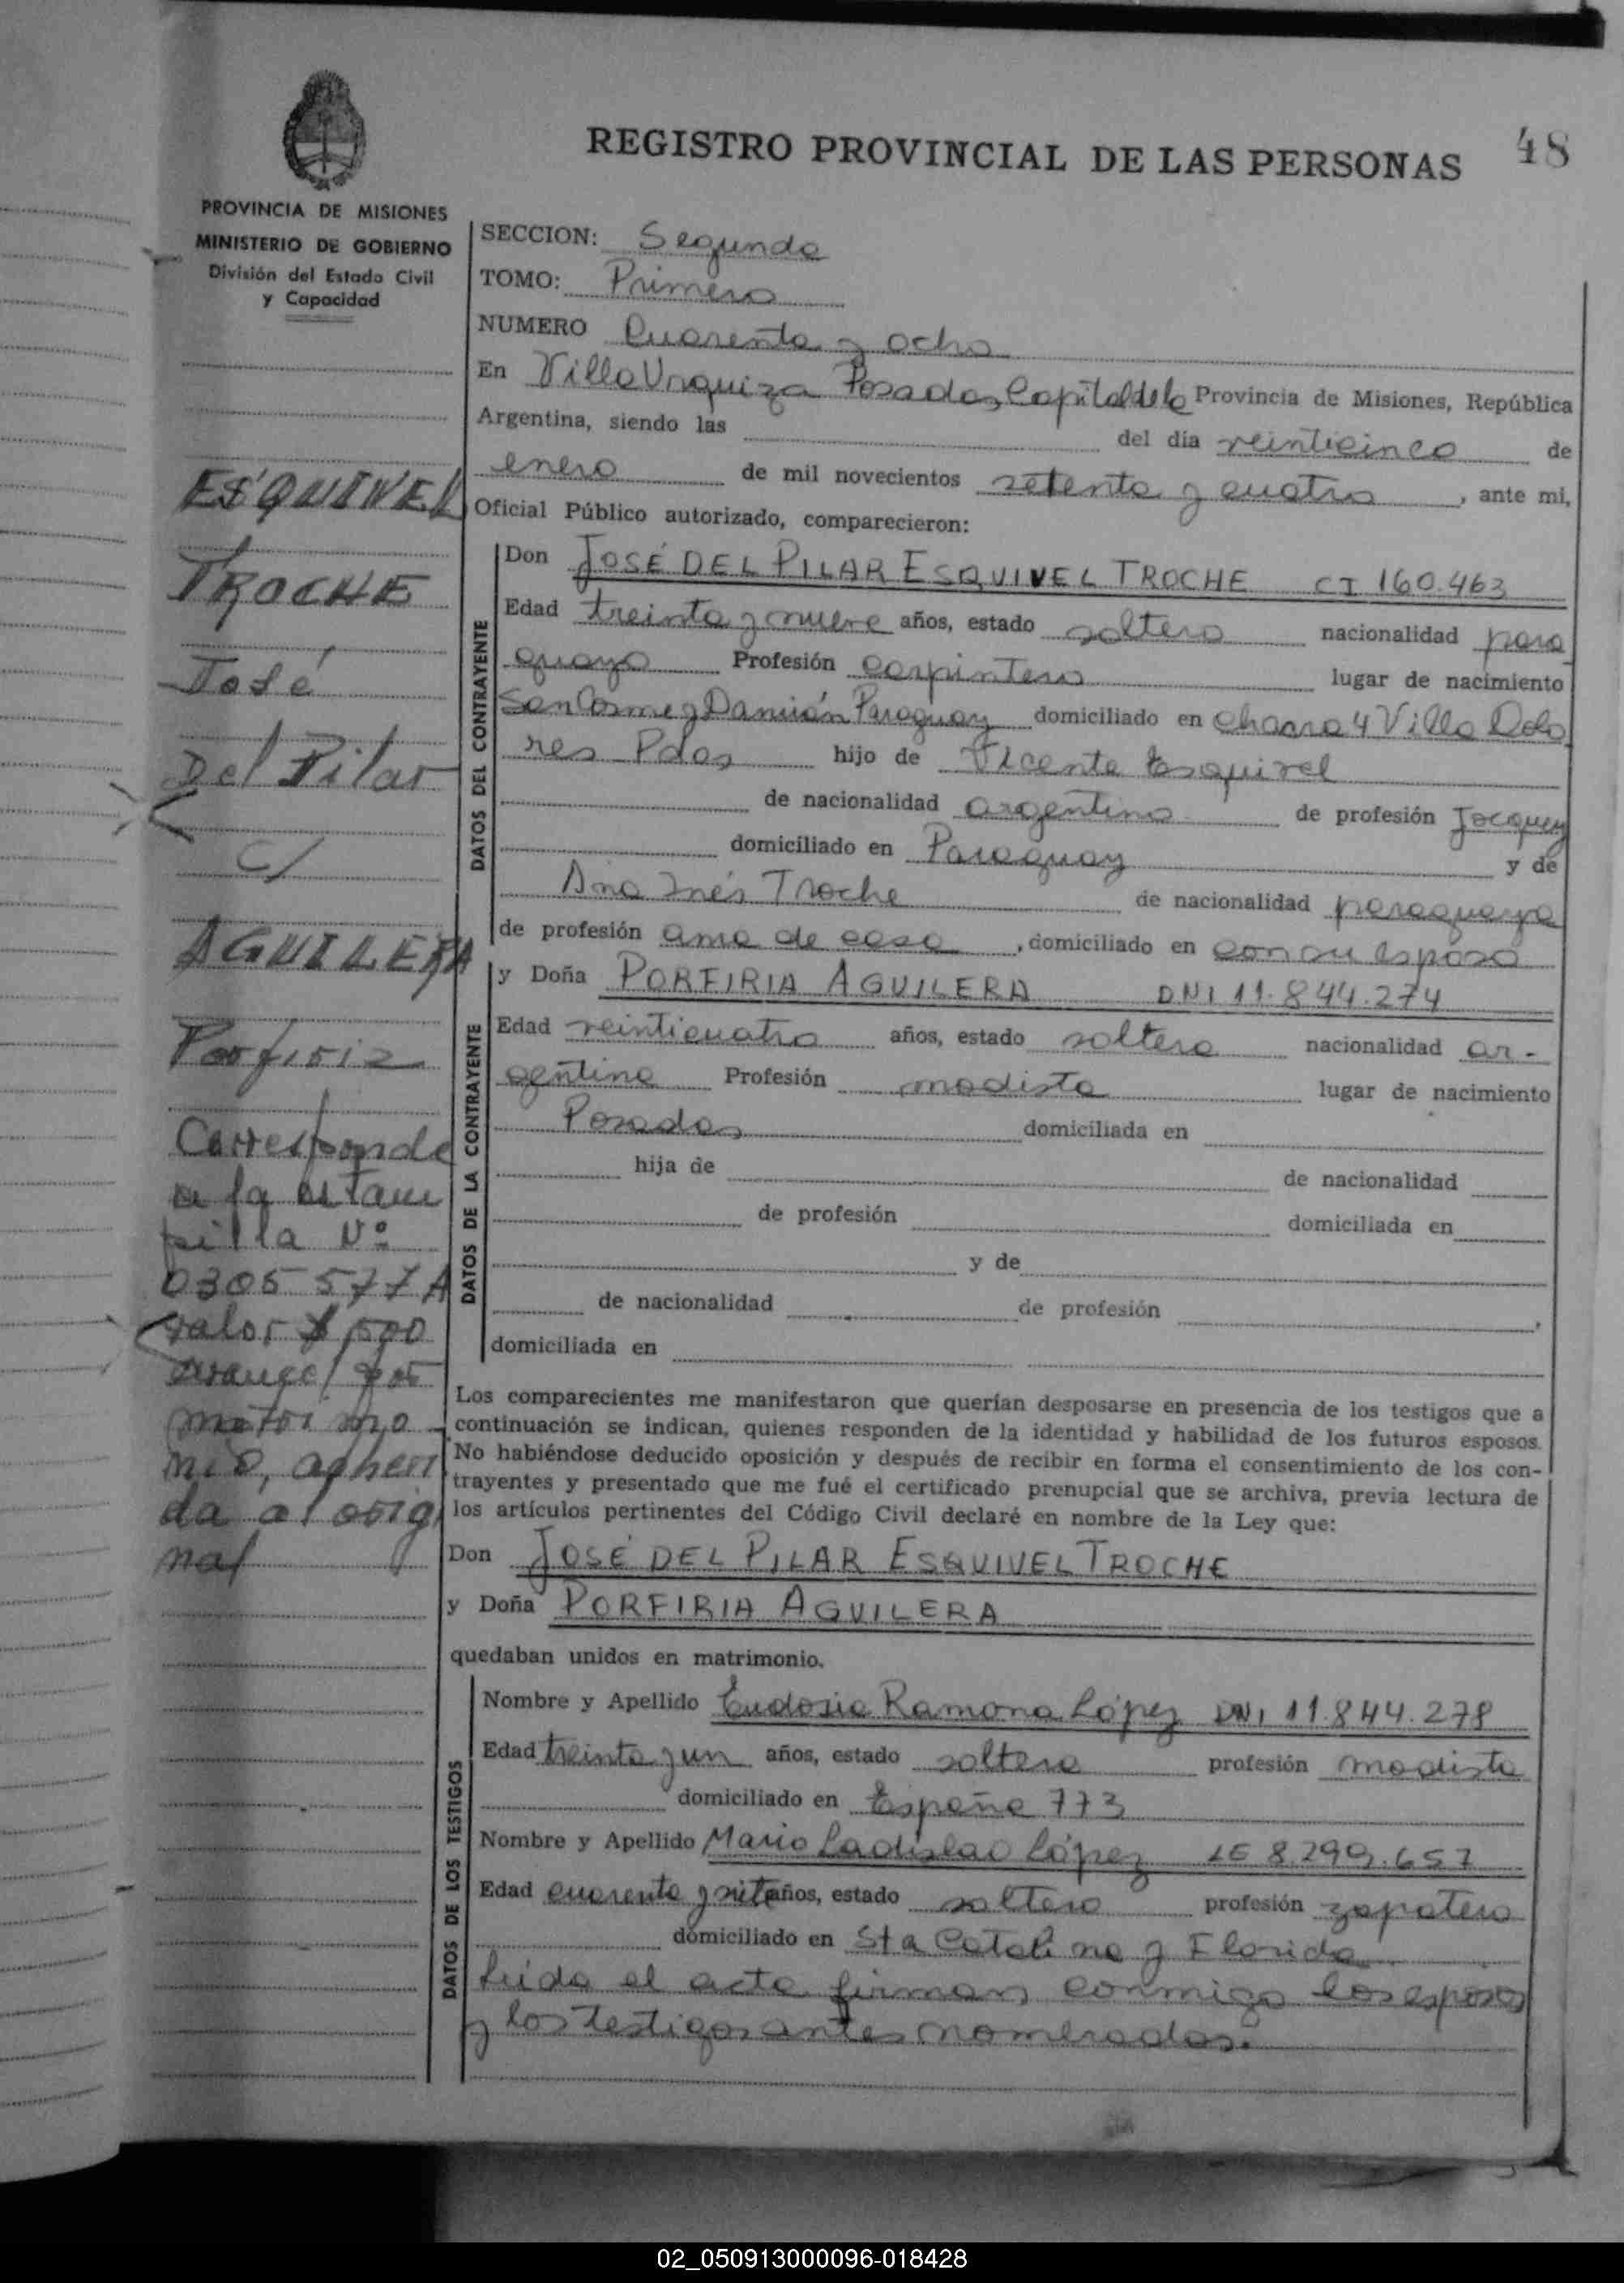 48
REGISTRO PROVINCIAL DE LAS PERSONAS
PROVINCIA DE MISIONES
MINISTERIO DE GOBIERNO
División del Estado Civil
y Capacidad
ESQUIVEL
TROCHE
José
Del Pilar
c/
AGUILERA
Porfiria
Corresponde
a la estam
pilla Nº
0305577A
valor $ 500
arancel por
matrimo
nio, adheri
da al origi
nal
SECCION: Segunda
TOMO: Primero
NUMERO Cuarenta y ocho
En Villa Urquiza Posadas, Capital de la Provincia de Misiones, República
Argentina, siendo las del día veinticinco de
enero de mil novecientos setenta y cuatro, ante mi,
Oficial Público autorizado, comparecieron:
DATOS DEL CONTRAYENTE
Don JOSÉ DEL PILAR ESQUIVEL TROCHE CI 160.463
Edad treinta y nueve años, estado soltero nacionalidad para
guayo Profesión carpintero lugar de nacimiento
San Cosme y Damián Paraguay domiciliado en Chacra 4 Villa Dolo
res Pdas hijo de Vicente Esquivel
de nacionalidad argentino de profesión Jocquey
domiciliado en Paraguay y de
Ana Inés Troche de nacionalidad paraguaya
de profesión ama de casa, domiciliado en con su esposo
DATOS DE LA CONTRAYENTE
y Doña PORFIRIA AGUILERA DNI 11.844.274
Edad veinticuatro años, estado soltera nacionalidad ar-
gentina Profesión modista lugar de nacimiento
Posadas domiciliada en
hija de de nacionalidad
de profesión domiciliada en
y de
de nacionalidad de profesión ,
domiciliada en
Los comparecientes me manifestaron que querían desposarse en presencia de los testigos que a
continuación se indican, quienes responden de la identidad y habilidad de los futuros esposos.
No habiéndose deducido oposición y después de recibir en forma el consentimiento de los con-
trayentes y presentado que me fué el certificado prenupcial que se archiva, previa lectura de
los artículos pertinentes del Código Civil declaré en nombre de la Ley que:
Don JOSÉ DEL PILAR ESQUIVEL TROCHE
y Doña PORFIRIA AGUILERA
quedaban unidos en matrimonio.
DATOS DE LOS TESTIGOS
Nombre y Apellido Eudosia Ramona López DNI 11.844.278
Edad treinta y un años, estado soltera profesión modista
domiciliado en España 773
Nombre y Apellido Mario Ladislao López LE 8.299.657
Edad cuarenta y siete años, estado soltero profesión zapatero
domiciliado en Sta Catalina y Florida
Leída el acta firman conmigo los esposos
y los testigos antes nombrados.
02_050913000096-018428